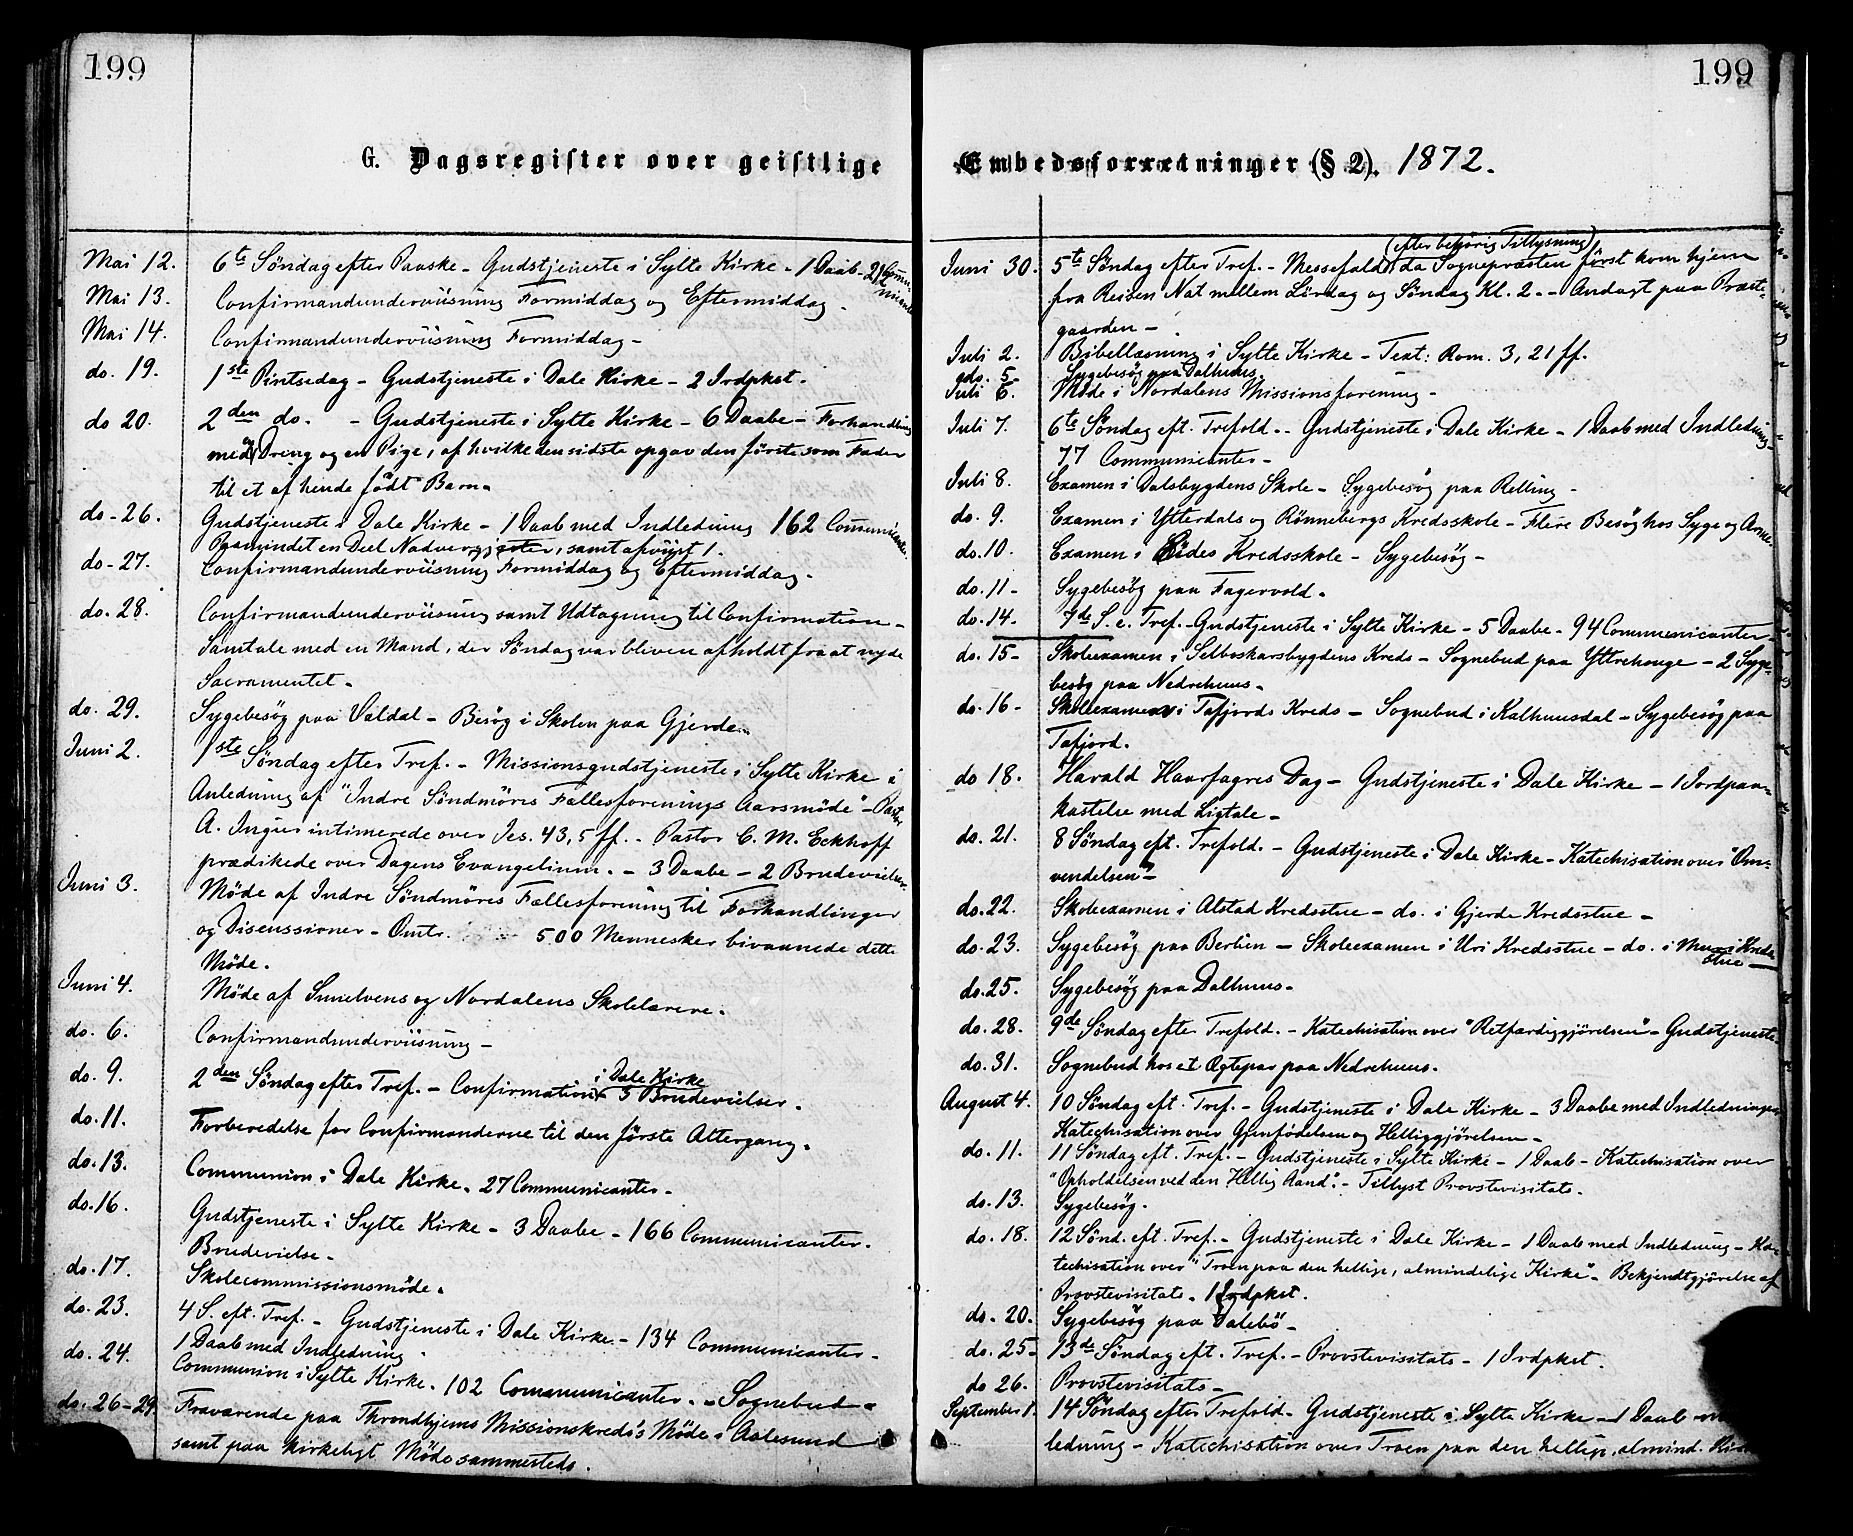 199
G. Dagsregister over geistlige
Mai 12. 6te Søndag efter Paaske - Gudstjeneste i Sylte Kirke - 1 Daab - 21 Commu-
nicanter
Mai 13. Confirmandunderviisning Formiddag og Eftermiddag.
Mai 14. Confirmandunderviisning Formiddag -
do. 19. 1ste Pintsedag - Gudstjeneste i Dale Kirke - 2 Jrdpkst.
do 20. 2den do. - Gudstjeneste i Sylte Kirke - 6 Daabe - Forhandling
med Dreng og en Pige, af hvilke den sidste opgav den første som Fader
til et af hende født Barn.
do - 26. Gudstjeneste i Dale Kirke - 1 Daab med Indledning 162 Communicanter.
Paamindet en Deel Nadvergjester, samt afviist 1.
do - 27. Confirmandunderviisning Formiddag og Eftermiddag.
do. 28. Confirmandunderviisning samt Udtagning til Confirmation -
Samtale med en Mand, der Søndag var bleven afholdt fra at nyde
Sacramentet -
do. 29. Sygebesøg paa Valdal - Besøg i Skolen paa Gjerde.
Juni 2. 1ste Søndag efter Tref. - Missionsgudstjeneste i Sylte Kirke i
Anledning af "Indre Søndmøres Fællesforenings Aarsmøde" - Pastor
A. Ingier intimerede over Jes. 43, 5 ff. - Pastor C. M. Eckhoff
prædikede over Dagens Evangelium. - 3 Daabe - 2 Brudevielser.
Juni 3. Møde af Indre Søndmøres Fællesforening til Forhandlinger
og Discussioner - Omtr. 500 Mennesker bivaanede dette
Møde.
Juni 4. Møde af Sunelvens og Nordalens Skolelærere.
do. 6. Confirmandunderviisning -
do. 9. 2den Søndag efter Tref. - Confirmation i Dale Kirke 5 Brudevielser.
do. 11. Forberedelse for Confirmanderne til den første Altergang.
do. 13. Communion i Dale Kirke. 27 Communicanter.
do. 16. Gudstjeneste i Sylte Kirke - 3 Daabe - 166 Communicanter.
Brudevielse -
do. 17. Skolecommissionsmøde.
do. 23. 4 S. eft. Tref. - Gudstjeneste i Dale Kirke - 134 Communicanter -
1 Daab med Indledning.
do. 24. Communion i Sylte Kirke. 102 Communicanter. - Sognebud -
do. 26-29. Fraværende paa Throndhjems Missionskreds's Møde i Aalesund
samt paa kirkeligt Møde sammesteds.
199
Embedsforretninger (§ 2). 1872.
Juni 30. 5te Søndag efter Tref. - Messefald (efter behørig Tillysning) da Sognepræsten først kom hjem
fra Reisen Nat mellem Lördag og Søndag Kl. 2. - Andagt paa Præste-
gaarden -
Juli 2. Bibellæsning i Sylte Kirke - Text: Rom. 3, 21 ff.
do. 5. Sygebesøg paa Dalhuus.
Juli 6. Møde i Nordalens Missionsforening -
Juli 7. 6te Søndag eft. Trefold. - Gudstjeneste i Dale Kirke - 1 Daab med Indledning -
77 Communicanter -
Juli 8. Examen i Dalsbygdens Skole - Sygebesøg paa Relling -
do. 9. Examen i Ytterdals og Rønnebergs Kredsskole - Flere Besøg hos Syge og Arme.
do. 10. Examen i Eides Kredsskole - Sygebesøg -
do. 11 - Sygebesøg paa Fagervold.
do. 14 - 7de S. e. Tref. - Gudstjeneste i Sylte Kirke - 5 Daabe - 94 Communicanter -
do. 15 - Skoleexamen i Selboskarsbygdens Kreds - Sognebud paa Yttrehauge - 2 Syge-
besøg paa Nedrehuus.
do. 16 - Skoleexamen i Tafjords Kreds - Sognebud i Kalhuusdal - Sygebesøg paa
Tafjord.
do 18. Harald Haarfagres Dag - Gudstjeneste i Dale Kirke - 1 Jordpaa-
kastelse med Ligtale -
do. 21. 8 Søndag eft. Trefold. - Gudstjeneste i Dale Kirke - Katechisation over "Om-
vendelsen" -
do. 22. Skoleexamen i Alstad Kredsstue - do. i Gjerde Kredsstue -
do. 23. Sygebesøg paa Berlien - Skoleexamen i Uri Kredsstue - do. i Muri Kreds-
stue -
do. 25. Sygebesøg paa Dalhuus -
do. 28. 9de Søndag efter Trefold. - Katechisation over "Retfærdiggjørelsen" - Gudstjeneste.
do. 31. Sognebud hos et Ægtepar paa Nedrehuus.
August 4. 10 Søndag eft. Tref. - Gudstjeneste i Dale Kirke - 3 Daabe med Indledninger
Katechisation over Gjenfødelsen og Helliggjørelsen -
do. 11. 11 Søndag eft. Tref. - Gudstjeneste i Sylte Kirke - 1 Daab - Katechisation over
"Opholdelsen ved den Hellig Aand". - Tillyst Provstevisitats.
do. 13. Sygebesøg.
do. 18. 12 Sönd. eft. Tref. - Gudstjeneste i Dale Kirke - 1 Daab med Indledning - Ka-
techisation over "Troen paa den hellige, almindelige Kirke" - Bekjendtgjørelse af
Provstevisitats. 1 Jrdpkst.
do. 20. Sygebesøg paa Dalebö -
do. 25 - 13de Søndag eft. Tref. - Provstevisitats - 1 Jrdpkst.
do 26. Provstevisitats -
September 1. 14 Søndag efter Trefold - Gudstjeneste i Sylte Kirke - 1 Daab
ledning - Katechisation over Troen paa den hellige, almind.